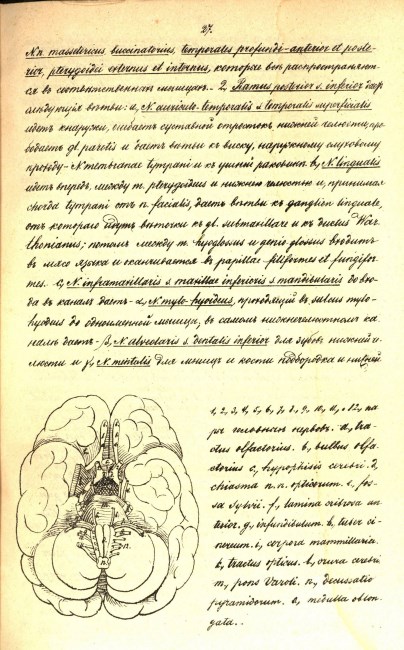 27.
N.n. massetericus, buccinatorius, temporales, profundi-anterior et poste-
rior, pterygoidei externus et internus, которые всѣ распространяют-
ся въ соотвѣтственныхъ мышцахъ. 2, Ramus posterior s. inferior даетъ
слѣдующія вѣтви: a, N. auriculo-temporalis s. temporalis superficialis
идетъ кнаружи, огибаетъ суставной отростокъ нижней челюсти, про
бодаетъ gl. parotis и даетъ вѣтви къ виску, наружному слуховому
проходу - N. membranae tympani и къ ушной раковинѣ. b, N. lingualis
идетъ впередъ, между m. pterygoideus и нижнею челюстью и, принимая
chorda tympani отъ n. facialis, даетъ вѣтви къ ganglion linguale,
отъ котораго идутъ вѣточки къ gl. submaxillare и къ ductus War
thonianus; потомъ между m. hyoglossus и genio glossus входитъ
въ мясо языка и оканчивается въ papillae filiformes et fungifor
mes. c, N. inframaxillaris s. maxillae inferioris s. mandibularis до вхо
да въ каналъ даетъ - α, N. mylo-hyoideus, проходящій въ sulcus mylo-
hyoideus до одноименной мышцы, въ самомъ нижнечелюстномъ ка
налѣ даетъ - β, N. alveolaris s. dentalis inferior для зубовъ нижней че-
люсти и γ, N. mentalis для мышцъ и кости подбородка и нижней
1, 2, 3, 4, 5, 6, 7, 8, 9, 10, 11, 12, па
ръ головныхъ нервовъ. a, trac
tus olfactorius. b, bulbus olfa
ctorius c, hypophisis cerebri. d,
chiasma n.n. opticorum. e, fos
sa Sylvii. f, lamina cribrosa an
terior. g, infundibulum. h, tuber ci-
nereum. i, corpora mammillaria
k, tractus opticus. l, crura cerebri
m, pons Varoli. n, decussatio
pyramidorum. o, medulla oblon
gata..